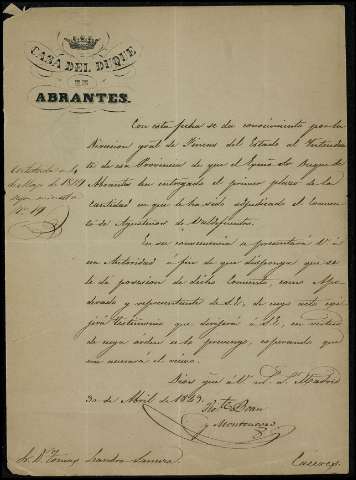 CASA DEL DUQUE
DE
ABRANTES.
Con esta fecha se da conocimiento por la
Direccion gral de Fincas del Estado al Intenden
te de esa Provincia de que el Exmo. Sr. Duque de
Abrantes ha entregado el primer plazo de la
cantidad en que le ha sido adjudicado el Conven
to de Agustinos de Valdefuentes.
Contestada en 4
de Mayo de 1849
segun minuta
nº 19
En su consecuencia se presentará V. á
esa Autoridad á fin de que disponga que se
le dé posesion de dicho Convento, como Apo
derado y representante de S.E., de cuyo acto exi
jirá testimonio que remitirá á S.E., en virtud
de cuya orden se lo prevengo, esperando que
me acusará el recibo.
Dios gue á V. ms. as. Madrid
30 de Abril de 1843.
Juan
y Montenegro
Sr. Dn. Tomas Leandro
Caceres.